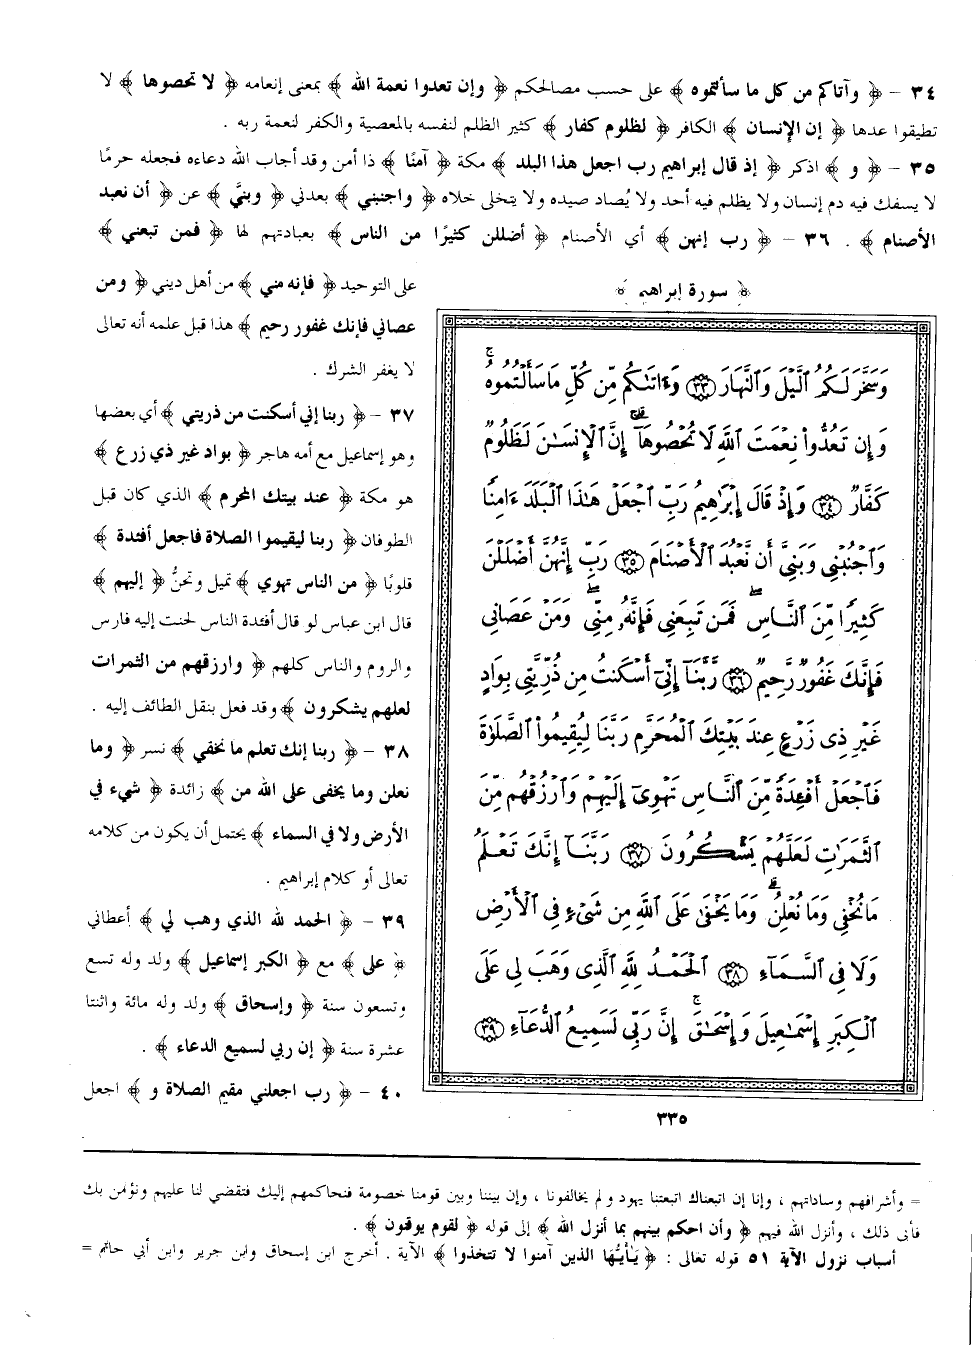 ٣٤ - ﴿ وآتاكم من كل ما سألتموه ﴾ على حسب مصالحكم ﴿ وإن تعدوا نعمة الله ﴾ بمعنى إنعامه ﴿ لا تحصوها ﴾ لا
تطيقوا عدها ﴿ إن الإنسان ﴾ الكافر ﴿ لظلوم كفار ﴾ كثير الظلم لنفسه بالمعصية والكفر لنعمة ربه .
٣٥ - ﴿ و ﴾ اذكر ﴿ إذ قال إبراهيم رب اجعل هذا البلد ﴾ مكة ﴿ آمنًا ﴾ ذا أمن وقد أجاب الله دعاءه فجعله حرمًا
لا يسفك فيه دم إنسان ولا يظلم فيه أحد ولا يُصاد صيده ولا يختلى خلاه ﴿ واجنبني ﴾ بعدني ﴿ وبنيَّ ﴾ عن ﴿ أن نعبد
الأصنام ﴾ . ٣٦ - ﴿ رب إنهن ﴾ أي الأصنام ﴿ أضللن كثيرًا من الناس ﴾ بعبادتهم لها ﴿ فمن تبعني ﴾
على التوحيد ﴿ فإنه مني ﴾ من أهل ديني ﴿ ومن
عصاني فإنك غفور رحيم ﴾ هذا قبل علمه أنه تعالى
لا يغفر الشرك .
٣٧ - ﴿ ربنا إني أسكنت من ذريتي ﴾ أي بعضها
وهو إسماعيل مع أمه هاجر ﴿ بواد غير ذي زرع ﴾
هو مكة ﴿ عند بيتك المحرم ﴾ الذي كان قبل
الطوفان ﴿ ربنا ليقيموا الصلاة فاجعل أفئدة ﴾
قلوبًا ﴿ من الناس تهوي ﴾ تميل وتحنُّ ﴿ إليهم ﴾
قال ابن عباس لو قال أفئدة الناس لحنت إليه فارس
والروم والناس كلهم ﴿ وارزقهم من الثمرات
لعلهم يشكرون ﴾ وقد فعل بنقل الطائف إليه .
٣٨ - ﴿ ربنا إنك تعلم ما نخفي ﴾ نسر ﴿ وما
نعلن وما يخفى على الله من ﴾ زائدة ﴿ شيء في
الأرض ولا في السماء ﴾ يحتمل أن يكون من كلامه
تعالى أو كلام إبراهيم .
٣٩ - ﴿ الحمد لله الذي وهب لي ﴾ أعطاني
﴿ على ﴾ مع ﴿ الكبر إسماعيل ﴾ ولد وله تسع
وتسعون سنة ﴿ وإسحاق ﴾ ولد وله مائة واثنتا
عشرة سنة ﴿ إن ربي لسميع الدعاء ﴾ .
٤٠ - ﴿ رب اجعلني مقيم الصلاة و ﴾ اجعل
﴿ سورة إبراهيم ﴾
وَسَخَّرَ لَكُمُ ٱلَّيْلَ وَٱلنَّهَارَ ٣٣ وَءَاتَىٰكُم مِّن كُلِّ مَا سَأَلْتُمُوهُ ۚ
وَإِن تَعُدُّوا۟ نِعْمَتَ ٱللَّهِ لَا تُحْصُوهَآ ۗ إِنَّ ٱلْإِنسَـٰنَ لَظَلُومٌ
كَفَّارٌ ٣٤ وَإِذْ قَالَ إِبْرَٰهِيمُ رَبِّ ٱجْعَلْ هَـٰذَا ٱلْبَلَدَ ءَامِنًا
وَٱجْنُبْنِى وَبَنِىَّ أَن نَّعْبُدَ ٱلْأَصْنَامَ ٣٥ رَبِّ إِنَّهُنَّ أَضْلَلْنَ
كَثِيرًا مِّنَ ٱلنَّاسِ ۖ فَمَن تَبِعَنِى فَإِنَّهُۥ مِنِّى ۖ وَمَنْ عَصَانِى
فَإِنَّكَ غَفُورٌ رَّحِيمٌ ٣٦ رَّبَّنَآ إِنِّىٓ أَسْكَنتُ مِن ذُرِّيَّتِى بِوَادٍ
غَيْرِ ذِى زَرْعٍ عِندَ بَيْتِكَ ٱلْمُحَرَّمِ رَبَّنَا لِيُقِيمُوا۟ ٱلصَّلَوٰةَ
فَٱجْعَلْ أَفْـِٔدَةً مِّنَ ٱلنَّاسِ تَهْوِىٓ إِلَيْهِمْ وَٱرْزُقْهُم مِّنَ
ٱلثَّمَرَٰتِ لَعَلَّهُمْ يَشْكُرُونَ ٣٧ رَبَّنَآ إِنَّكَ تَعْلَمُ
مَا نُخْفِى وَمَا نُعْلِنُ ۗ وَمَا يَخْفَىٰ عَلَى ٱللَّهِ مِن شَىْءٍ فِى ٱلْأَرْضِ
وَلَا فِى ٱلسَّمَآءِ ٣٨ ٱلْحَمْدُ لِلَّهِ ٱلَّذِى وَهَبَ لِى عَلَى
ٱلْكِبَرِ إِسْمَـٰعِيلَ وَإِسْحَـٰقَ ۚ إِنَّ رَبِّى لَسَمِيعُ ٱلدُّعَآءِ ٣٩
٣٣٥
= وأشرافهم وساداتهم ، وإنا إن اتبعناك اتبعتنا يهود ولم يخالفونا ، وإن بيننا وبين قومنا خصومة فنحاكمهم إليك فتقضي لنا عليهم ونؤمن بك
فأبى ذلك ، وأنزل الله فيهم ﴿ وأن احكم بينهم بما أنزل الله ﴾ إلى قوله ﴿ لقوم يوقنون ﴾ .
أسباب نزول الآية ٥١ قوله تعالى : ﴿ يَـٰأيُّها الذين آمنوا لا تتخذوا ﴾ الآية . أخرج ابن إسحاق وابن جرير وابن أبي حاتم =